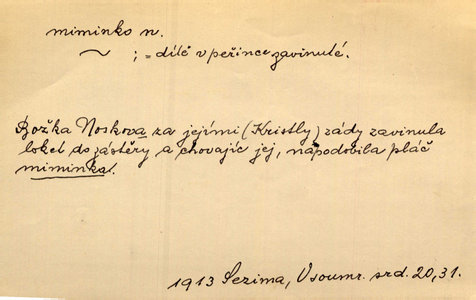 miminko n.
~ ; = dítě v peřince zavinuté.
Božka Noskova za jejími (Kristly) zády zavinula
loket do zástěry a chovajíc jej, napodobila pláč
miminka.
1913 Sezima, V soumr. srd. 20, 31.